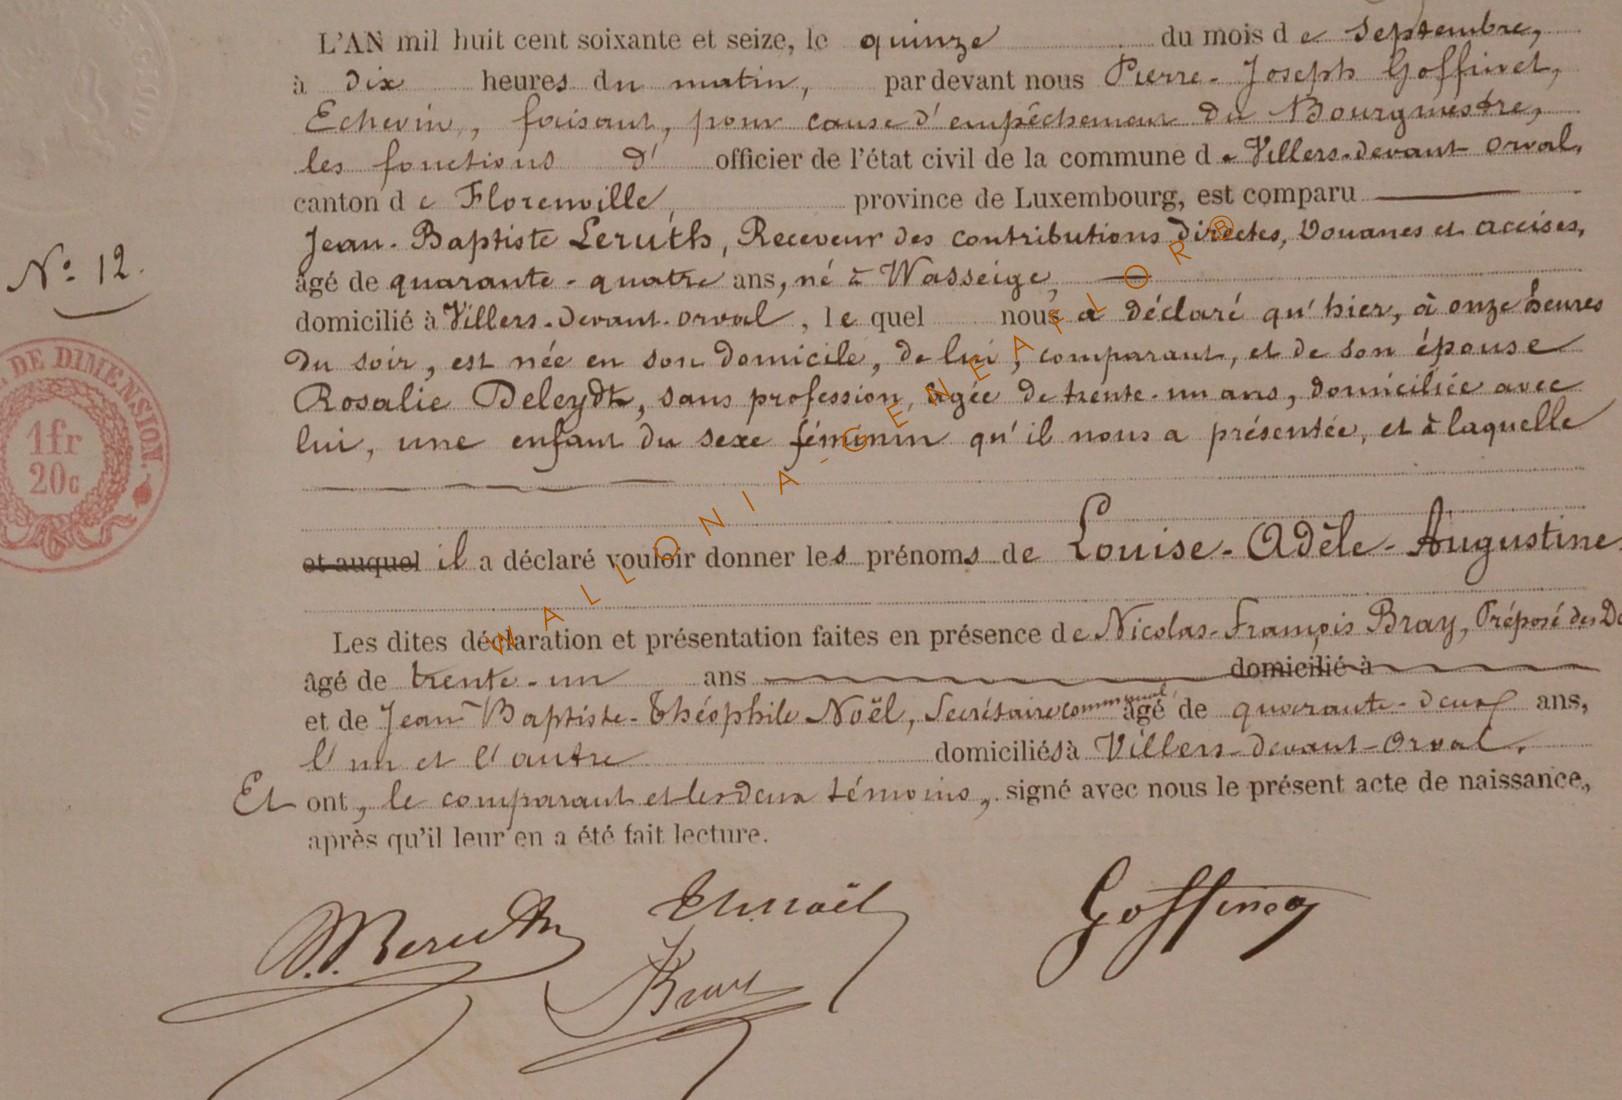 L'AN mil huit cent soixante et seize, le quinze du mois de Septembre,
à dix heures du matin, par devant nous Pierre-Joseph Goffinet,
Echevin, faisant, pour cause d'empêchement du Bourgmestre,
les fonctions d' officier de l'état civil de la commune de Villers-devant-Orval,
canton de Florenville, province de Luxembourg, est comparu
Jean-Baptiste Leruth, Receveur des contributions directes, Douanes et accises,
N° 12.
âgé de quarante-quatre ans, né à Wasseige,
domicilié à Villers-devant-orval, lequel nous a déclaré qu'hier, à onze heures
du soir, est née en son domicile, de lui, comparant, et de son épouse
Rosalie Deleydt, sans profession, âgée de trente-un ans, domiciliée avec
lui, une enfant du sexe féminin qu'il nous a présentée, et à laquelle
et auquel il a déclaré vouloir donner les prénoms de Louise-Adèle-Augustine
Les dites déclaration et présentation faites en présence de Nicolas-François Bray, Préposé des Do
âgé de trente-un ans domicilié à
et de Jean-Baptiste-Théophile Noël, Secrétaire communal, âgé de quarante-deux ans,
l'un et l'autre domiciliés à Villers-devant-Orval.
Et ont, le comparant et les deux témoins, signé avec nous le présent acte de naissance,
après qu'il leur en a été fait lecture.
Goffinet
Bray
DE DIMENSION.
1fr
20c
WALLONIA-GENEAFLOR®